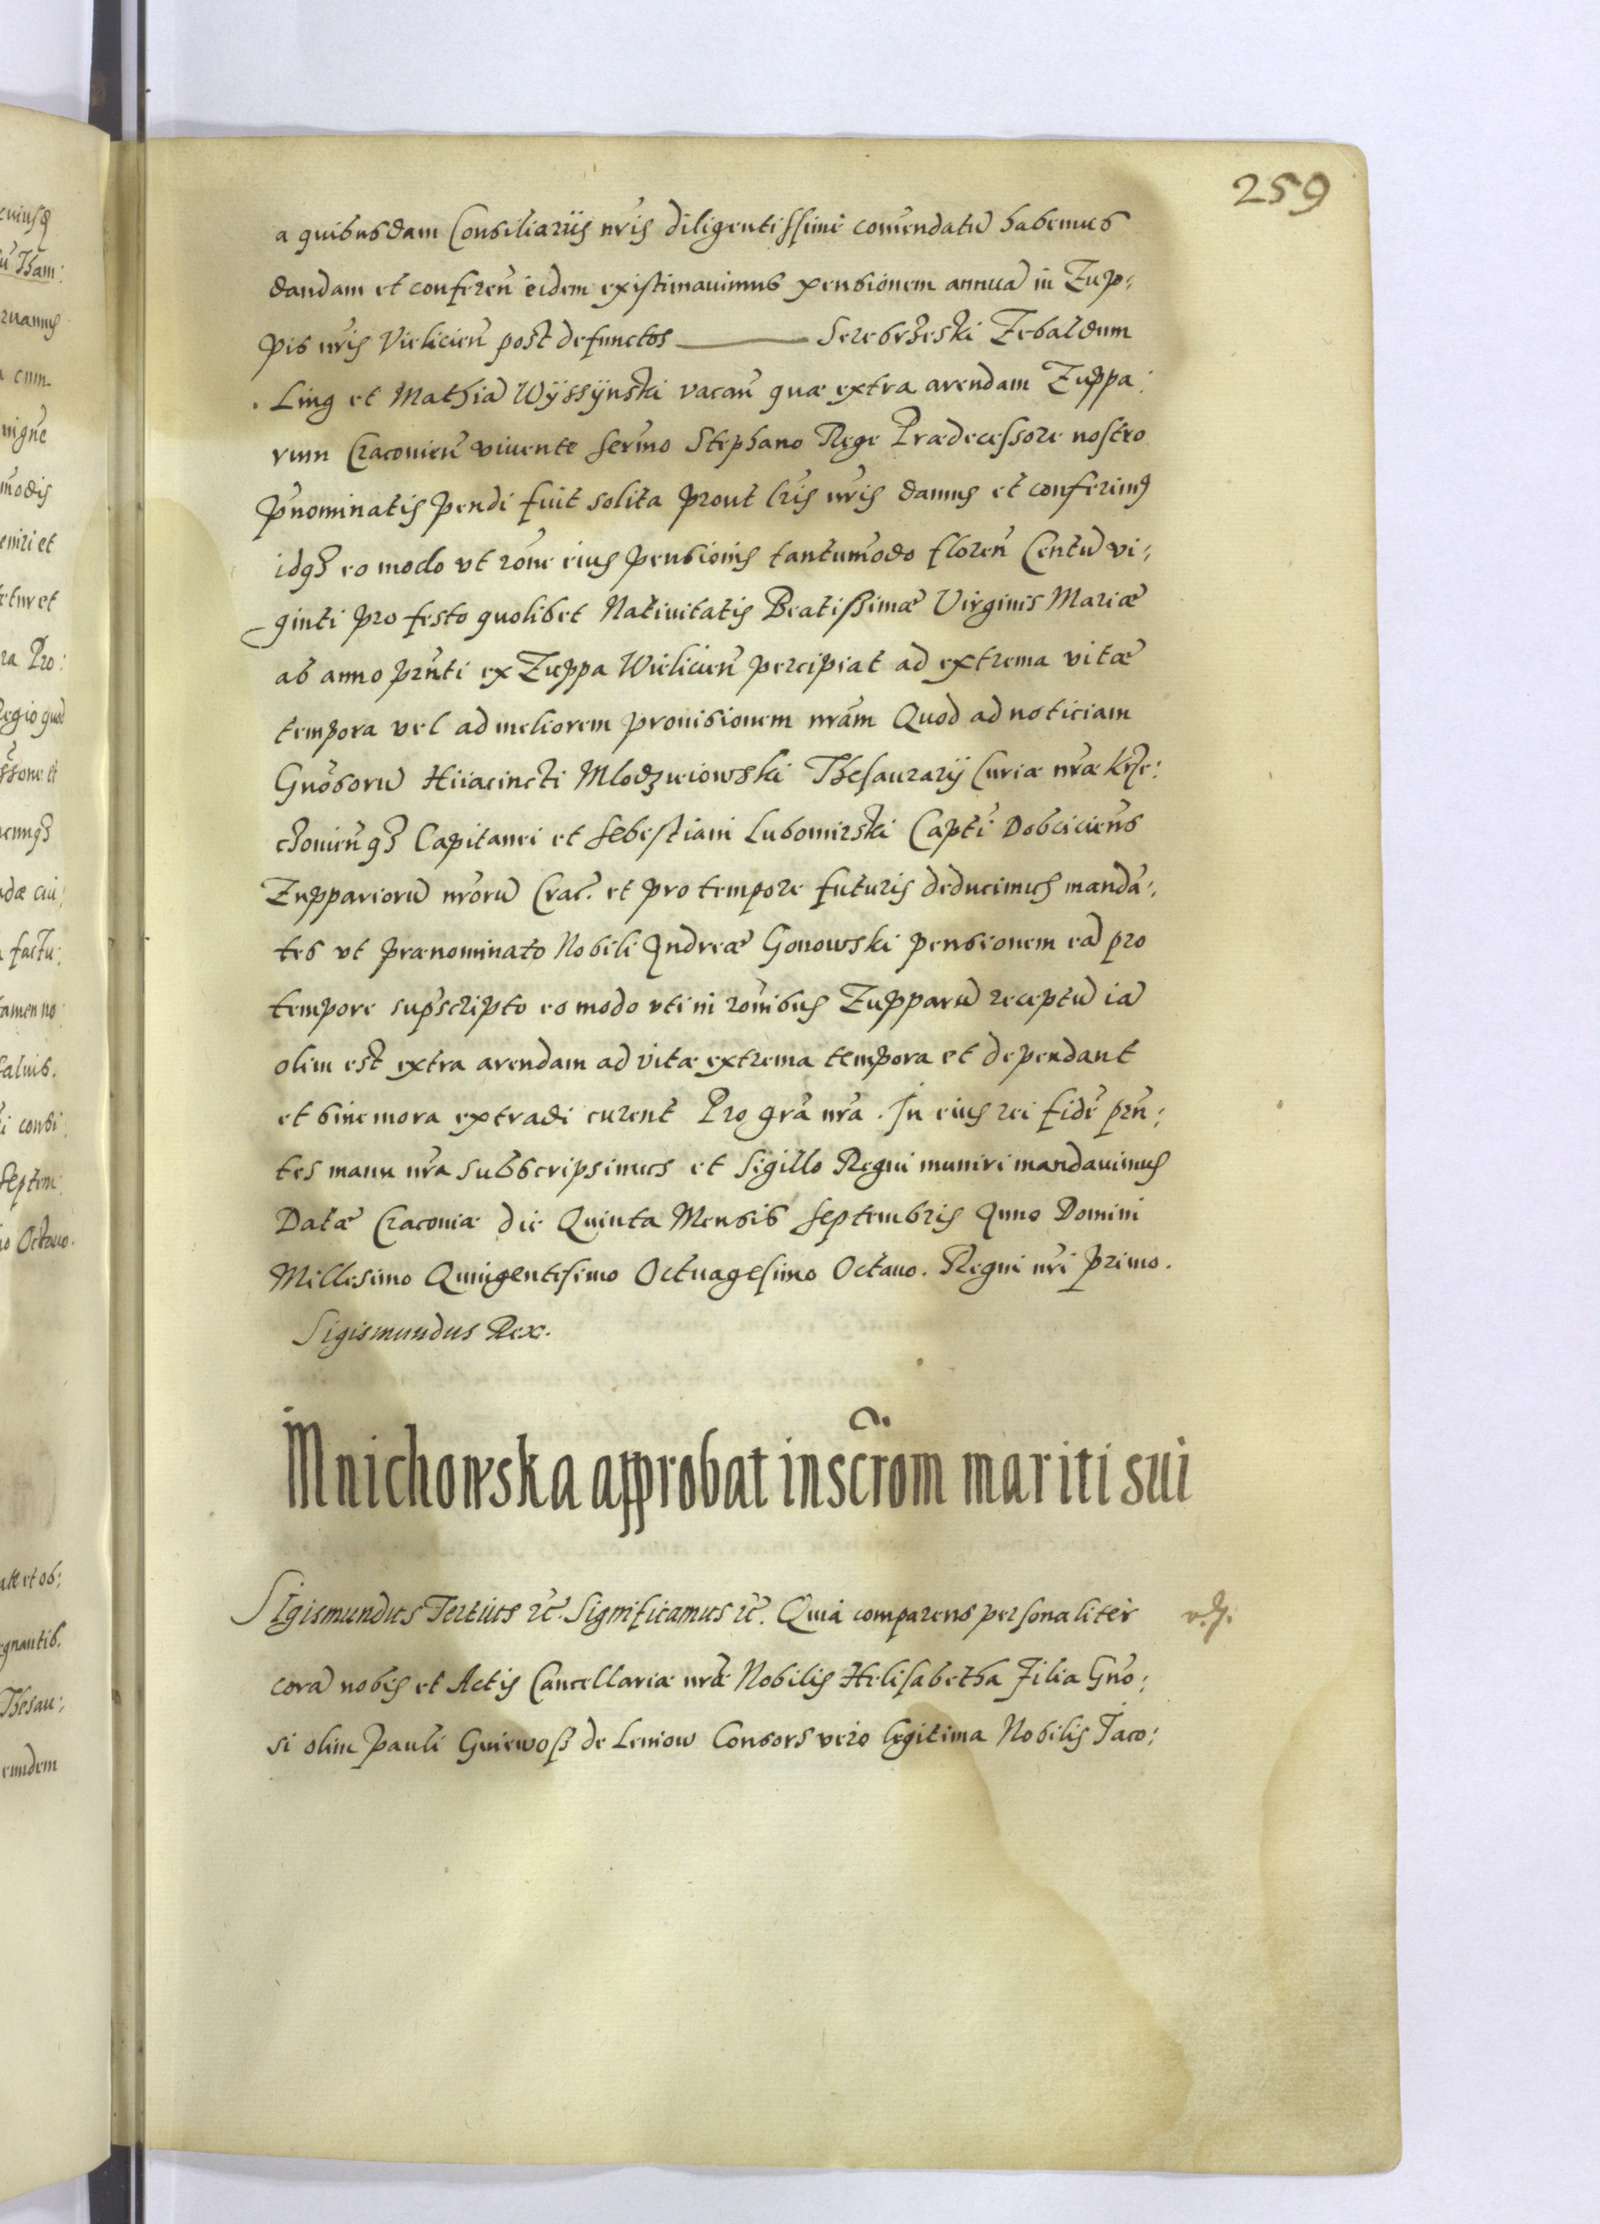 259
a quibusdam Consiliariis nrĩs diligentissime comẽndatũ habemus
dandam et conferen̄ eidem existimauimus pensionem annuã in Zup:
pis nrĩs Vielicien̄ post defunctos ——— Serebrzeski Zebaldum
Ling et Mathiã Wÿssÿnski vacan̄ quæ extra arendam Zuppa:
rum Cracovien̄ viuente Serm̃o Stephano Rege Prædecessore nostro
p̃nominatis pendi fuit solita prout lr̃is nrĩs damus et conferimus
idq3 eo modo vt rõne eius pensionis tantum̃odo floren̄ Centũ vi:
ginti pro festo quolibet Natiuitatis Beatissimæ Virginis Mariæ
ab anno prñti ex Zuppa Wielicien̄ percipiat ad extrema vitæ
tempora vel ad meliorem prouisionem nrãm Quod ad noticiam
Gnõsorũ Hiiacincti Mlodzieiowski Thesaurarij Curiæ nræ Krze:
czouien̄q3 Capitanei et Sebestiani Lubomirski Captĩ Dobcicien̄s
Zuppariorũ nrõrũ Crac̃. et pro tempore futuris deducimus mandã:
tes vt prænominato Nobili Andreæ Gonowski pensionem eã pro
tempore sup̃scripto eo modo vti in rõnibus Zupparũ receptũ iã
olim est extra arendam ad vitæ extrema tempora et dependant
et sine mora extradi curent Pro grã nrã. In eius rei fidẽ prñ:
tes manu nrã subscripsimus et Sigillo Regni muniri mandauimus
Datæ Cracoviæ die Quinta Mensis Septembris Anno Domini
Millesimo Quingentesimo Octuagesimo Octauo. Regni nrĩ primo.
Sigismundus Rex.
Mnichowska approbat inscr̃om mariti sui
SIgismundus Tertius rc̃. Significamus rc̃. Quia comparens personaliter
corã nobis et Actis Cancellariæ nræ Nobilis Helisabetha Filia Gnõ:
si olim Pauli Gniewoß de Leniow Consors vero legitima Nobilis Jaco: